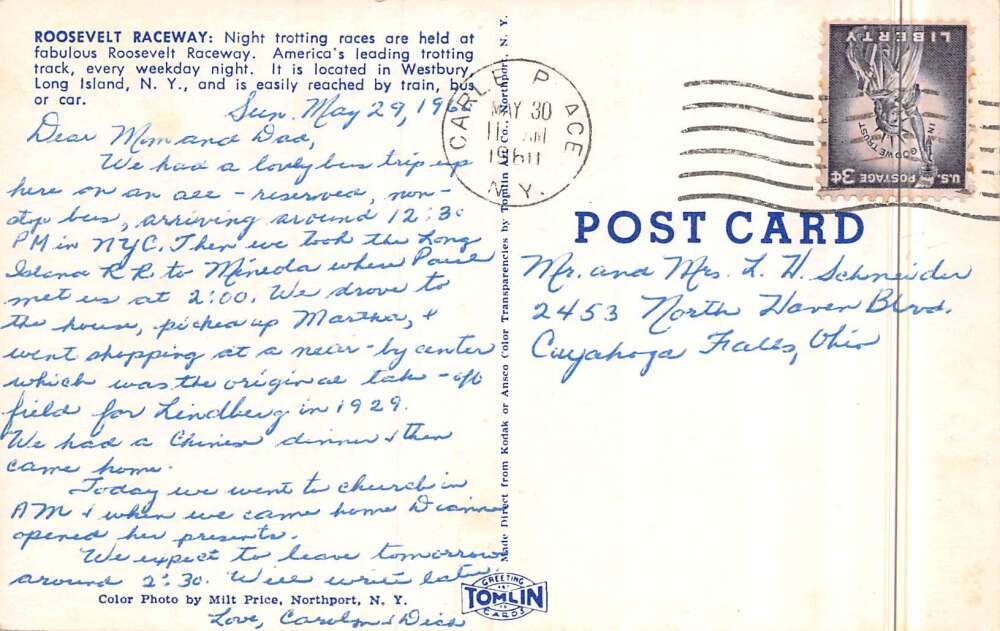 ROOSEVELT RACEWAY: Night trotting races are held at
fabulous Roosevelt Raceway. America's leading trotting
track, every weekday night. It is located in Westbury,
Long Island, N. Y., and is easily reached by train, bus
or car.
Sun. May 29, 1960
Dear Mom and Dad,
We had a lovely bus trip up
here on an all-reserved, non-
stop bus, arriving around 12:30
PM in NYC. Then we took the Long
Island R.R. to Mineola where Paul
met us at 2:00. We drove to
the house, picked up Martha, &
went shopping at a near-by center
which was the original take-off
field for Lindberg in 1929.
We had a Chinese dinner & then
came home.
Today we went to church in
AM & when we came home Dianne
opened her presents.
We expect to leave tomorrow
around 2:30. Will write later.
Love, Carolyn & Dick
Color Photo by Milt Price, Northport, N. Y.
Made Direct from Kodak or Ansco Color Transparencies by Tomlin Art Co., Northport, N. Y.
GREETING
TOMLIN
CARDS
CARLE PLACE
MAY 30
11 AM
1960
N.Y.
LIBERTY
IN GOD WE TRUST
U.S. POSTAGE 3¢
POST CARD
Mr. and Mrs. L. H. Schneider
2453 North Haven Blvd.
Cuyahoga Falls, Ohio